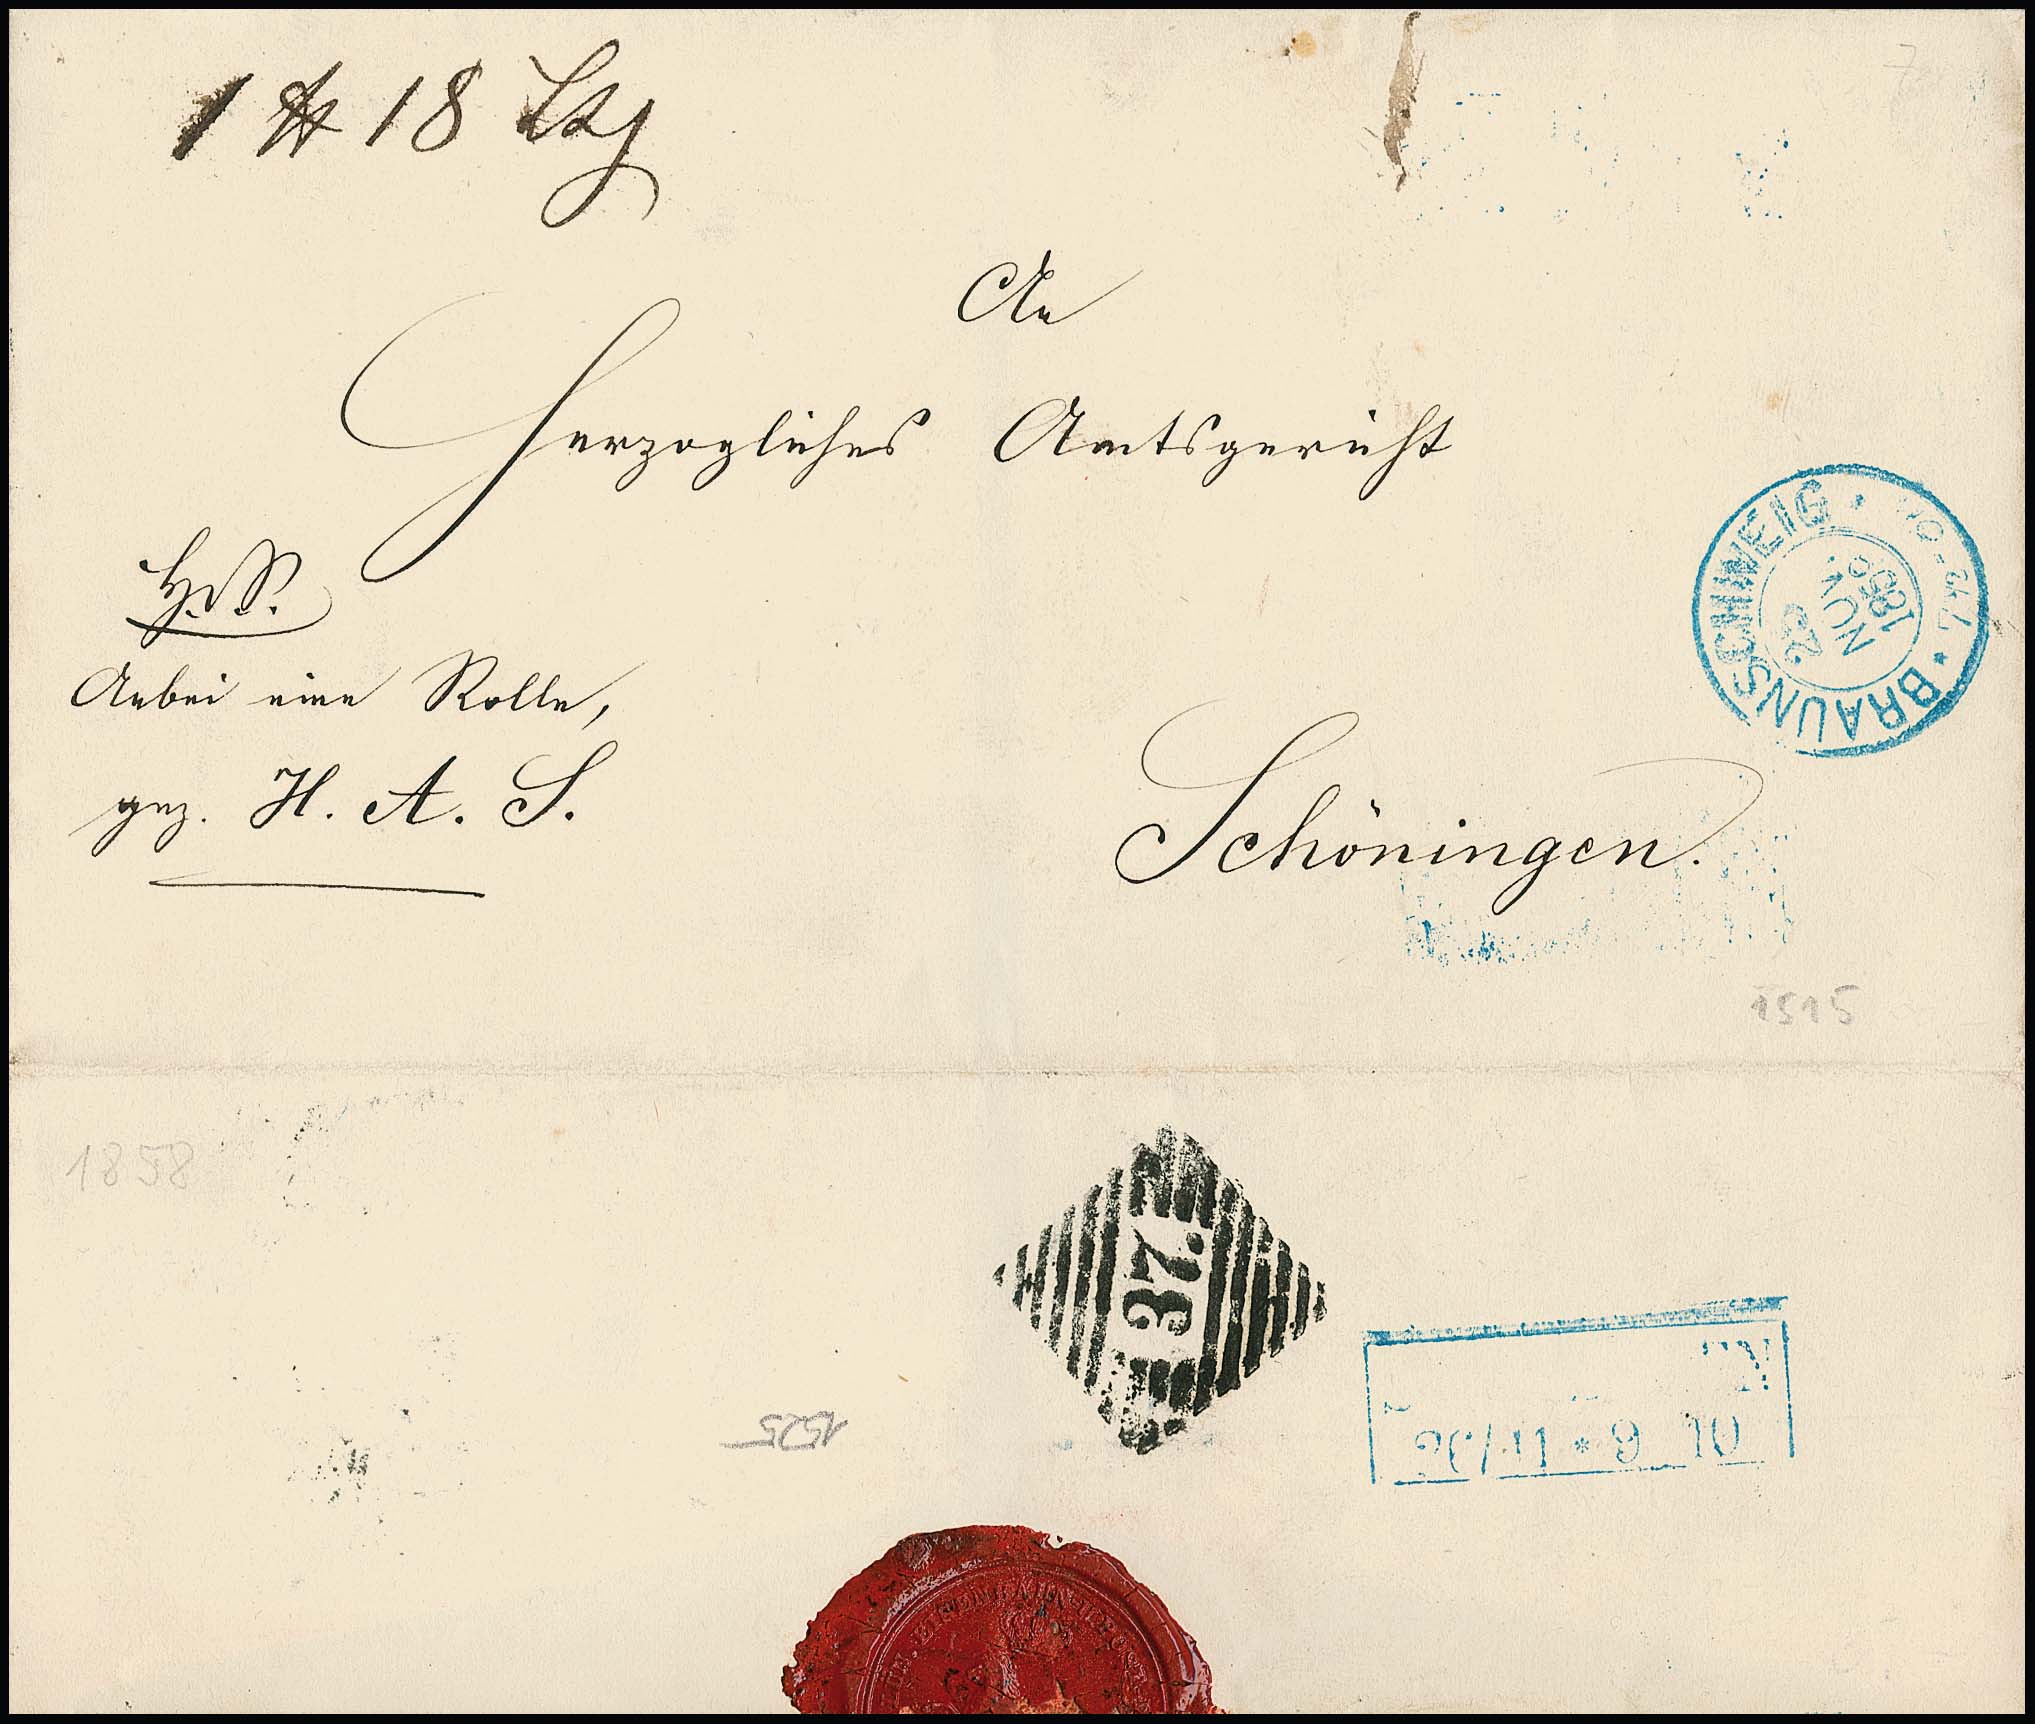 1 ℔ 18 Lth
An
Herzogliches Amtsgericht
H. S.
Anbei eine Rolle,
gez. H. A. S.
Schöningen.
BRAUNSCHWEIG
NOV.
1515
1858
37.
1525